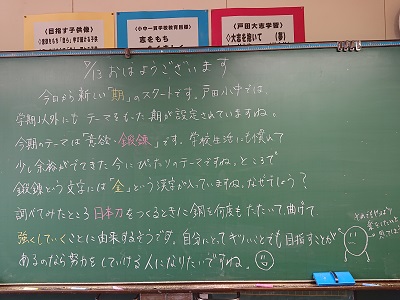 〈目指す子供像〉
〈小中一貫学校教育目標〉
志をもち
〈戸田大志学習〉
大志を抱いて 〈夢〉
5/13 おはようございます
今日から新しい「期」のスタートです。戸田小中では、
学期以外にもテーマをもった期が設定されていますね。
今期のテーマは「意欲・鍛錬」です。学校生活にも慣れて
少し余裕がでてきた今にぴったりのテーマですね。ところで
鍛錬という文字には「金」という漢字が入っていますね。なぜでしょう?
調べてみたところ日本刀をつくるときに鋼を何度もたたいて、曲げて
強くしていくことに由来するそうです。自分にとってキツいことでも目指すことが
あるのなら努力をしていける人になりたいですね。